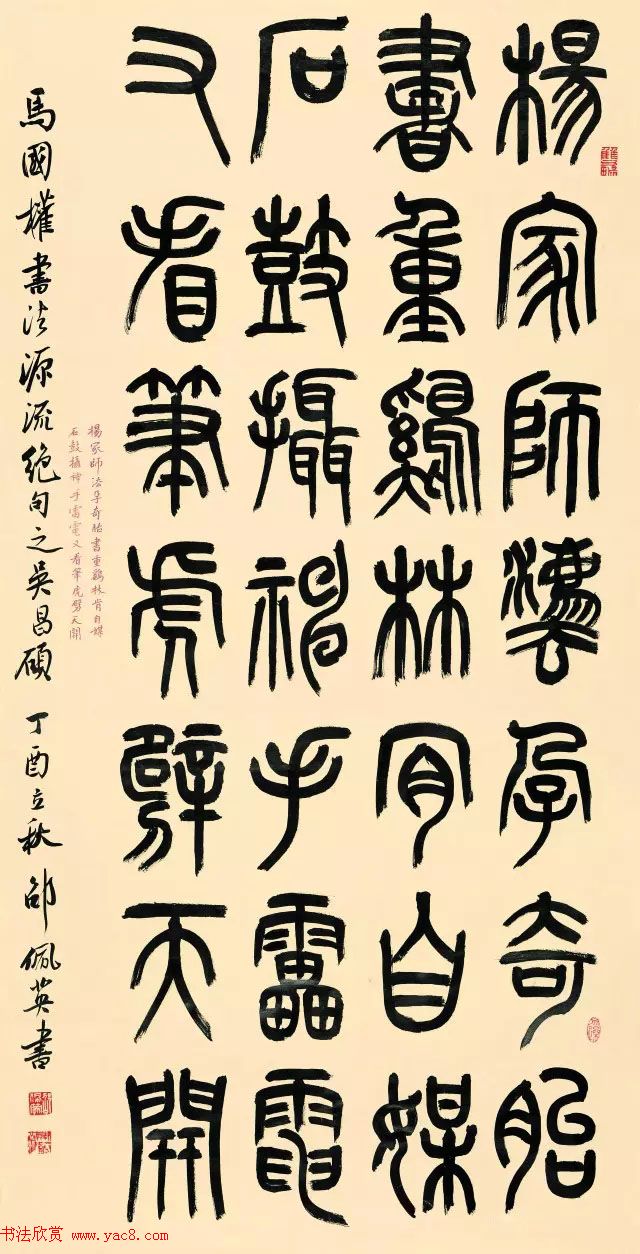 楊家師灋孕奇胎
書重鷄林肯自媒
石鼓攝神手靁電
又看筆虎劈天開
楊家師法孕奇胎書重鷄林肯自媒
石鼓攝神手雷電又看筆虎劈天開
馬國權書法源流絕句之吳昌碩 丁酉立秋 邵佩英書
书法欣赏 www.yac8.com